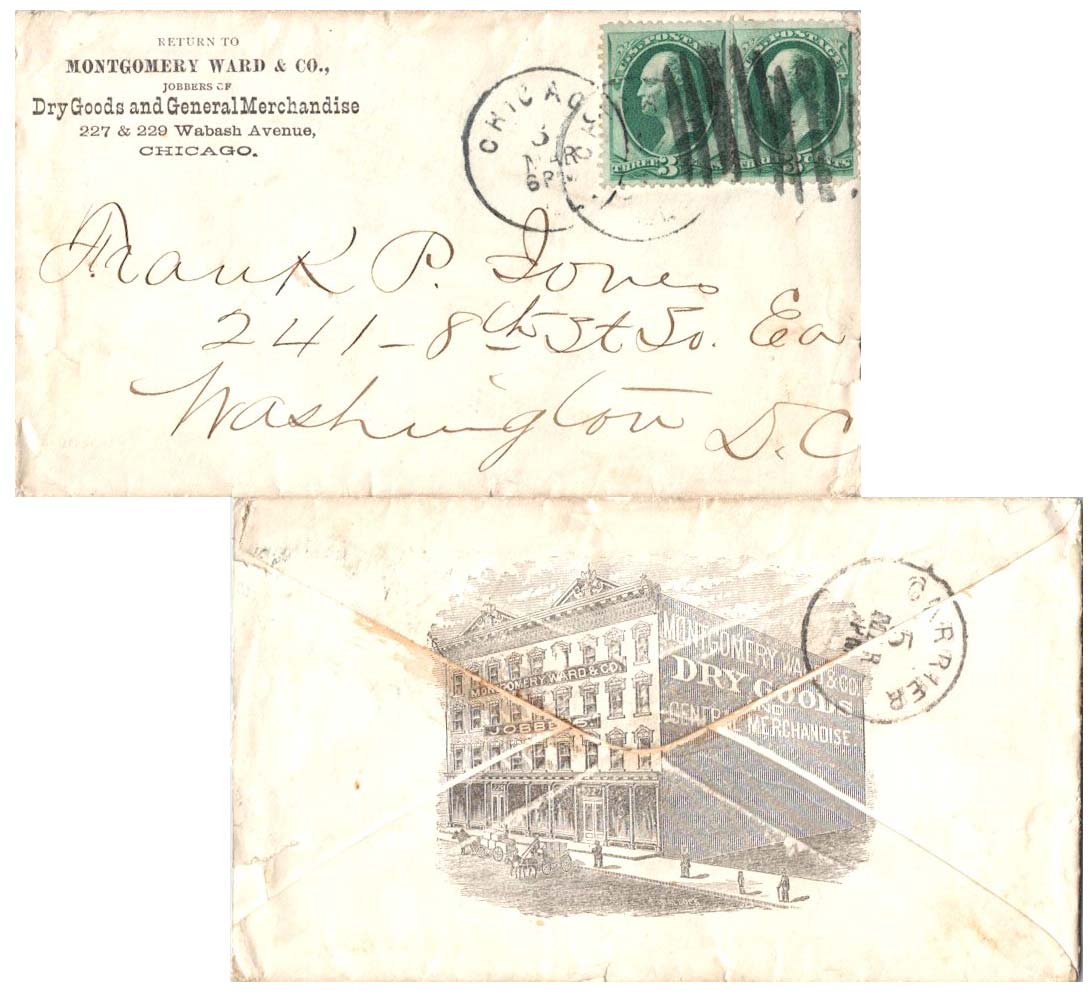 RETURN TO
MONTGOMERY WARD & CO.,
JOBBERS OF
Dry Goods and General Merchandise
227 & 229 Wabash Avenue,
CHICAGO.
U.S. POSTAGE
U.S. POSTAGE
THREE 3 CENTS
3 CENTS
CHICAGO
MAR
6PM
Frank P. Jones
241 - 8th St So. Ea
Washington D.C
MONTGOMERY WARD & CO.
JOBBERS.
227
MONTGOMERY WARD & CO.
DRY GOODS
AND
GENERAL MERCHANDISE.
CARRIER
5
MAR
PM